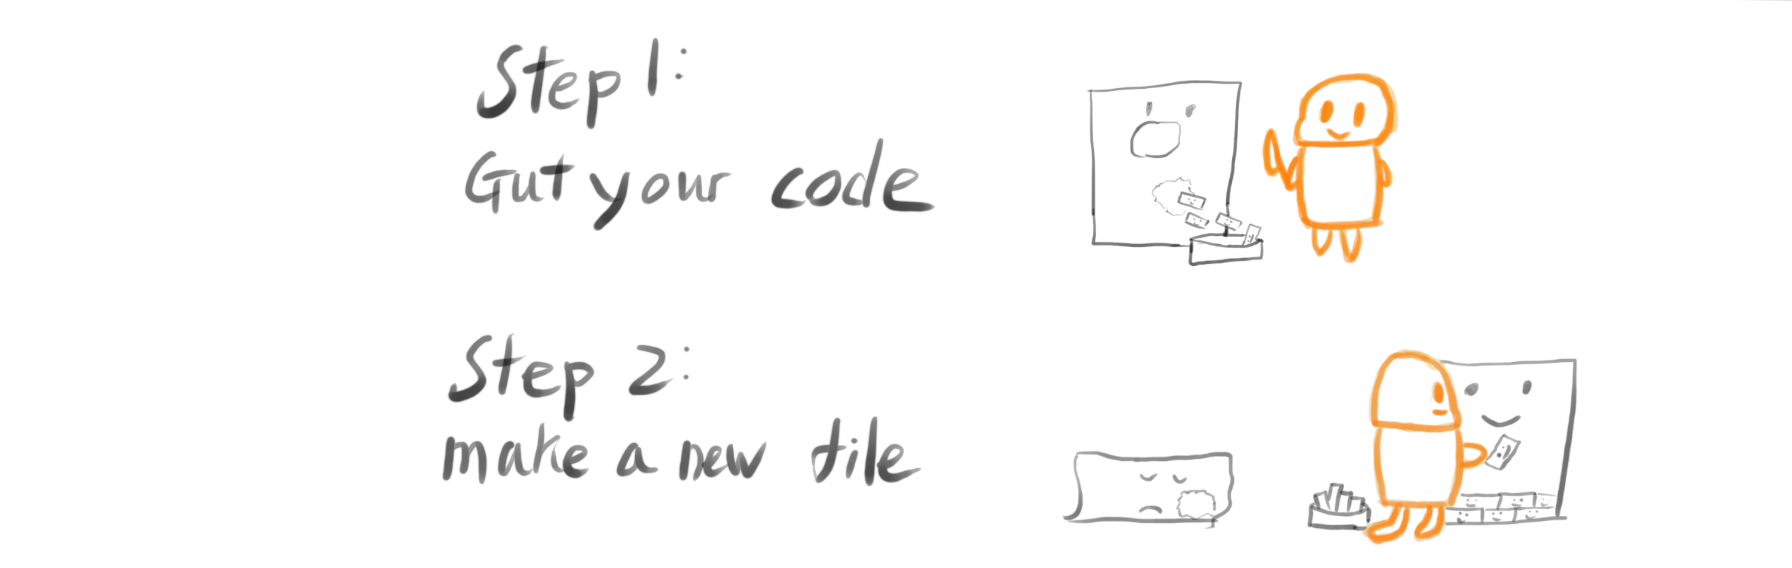 Step 1:
Gut your code
Step 2:
make a new file